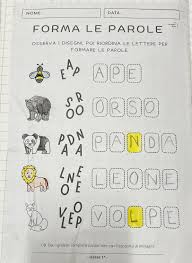 NOME
DATA
FORMA LE PAROLE
OSSERVA I DISEGNI, POI RIORDINA LE LETTERE PER
FORMARE LE PAROLE.
E A P APE
S R O O ORSO
P D N A A PANDA
L N E O E LEONE
V O L E P VOLPE